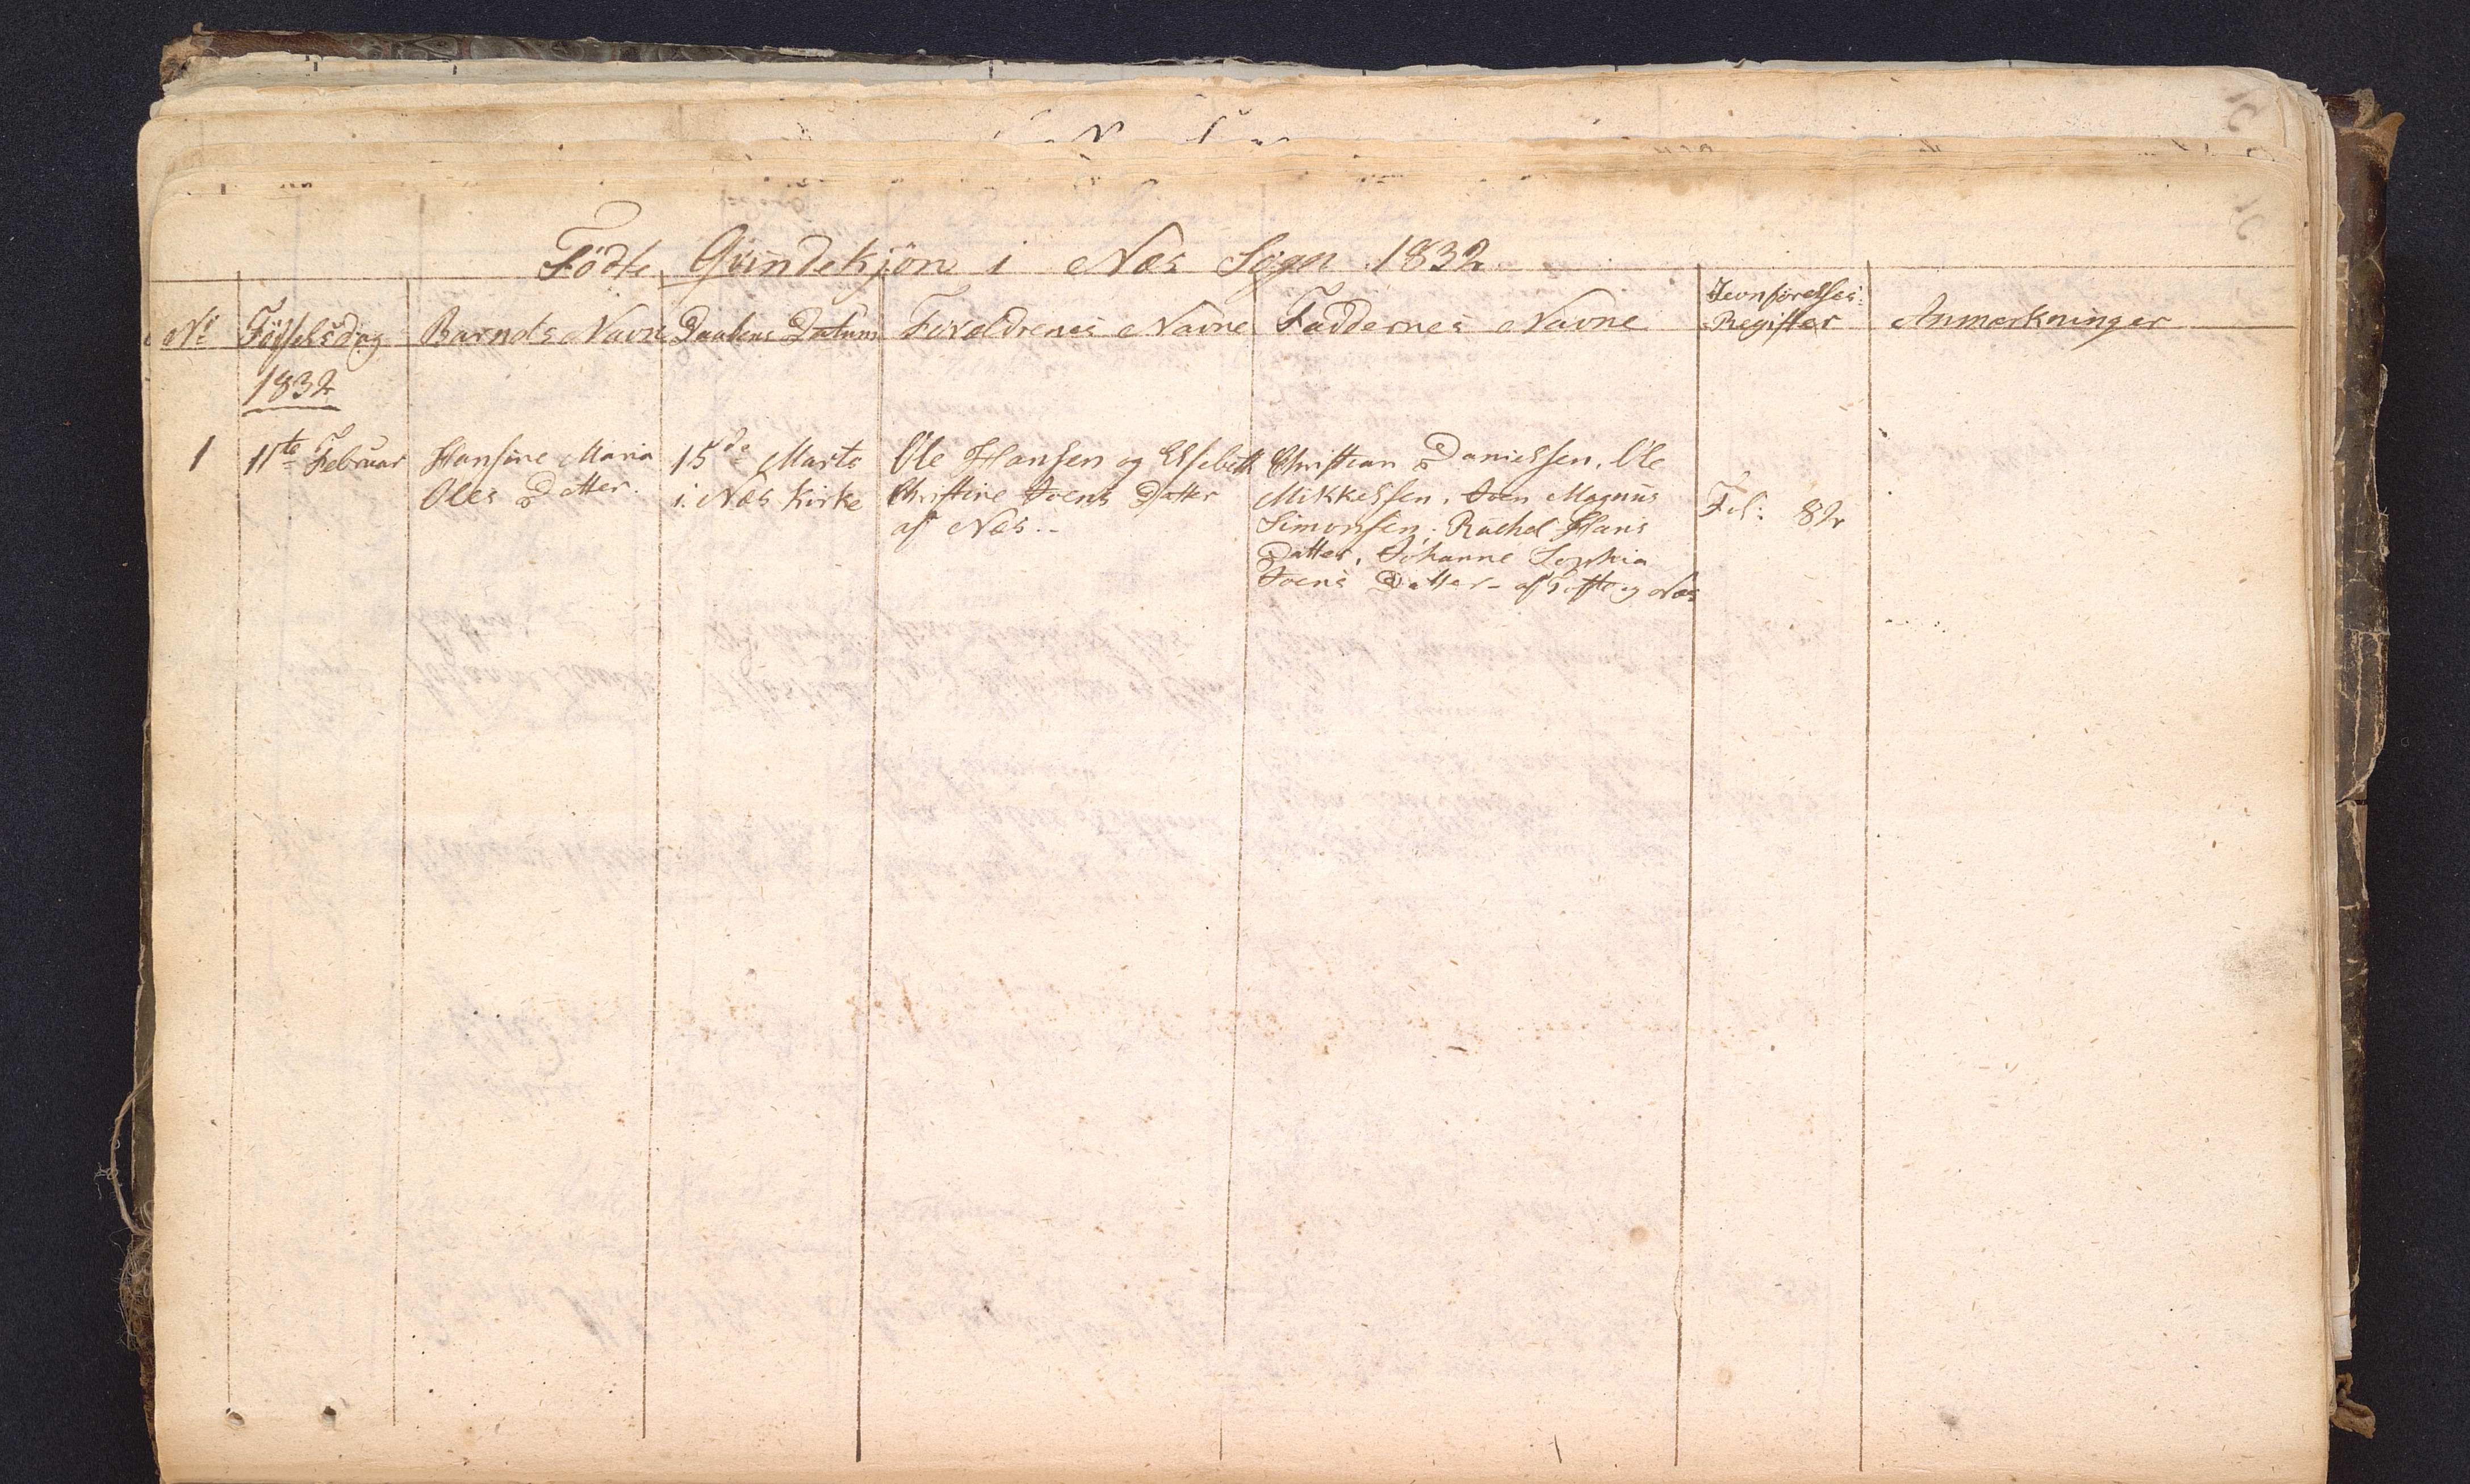 Fødte Qvindekjøn i Næs Sogn 1832
No Fødselsdag Barnets Navn Daabens Datum Forældrenes Navne Faddernes Navne Jevnførelses: Register Anmærkninger
1832
1 11te Februar Hansine Maria 15de Marts Ole Hansen og Elsebeth Christian Danielsen, Ole
Oles Datter. i Næs Kirke Christine Joens Datter Mikkelsen, Joen Magnus Fol: 82
af Næs.. Simonsen, Rachel Hans
Datter, Johanne Sophia
Joens Datter - af Tofte og Næs